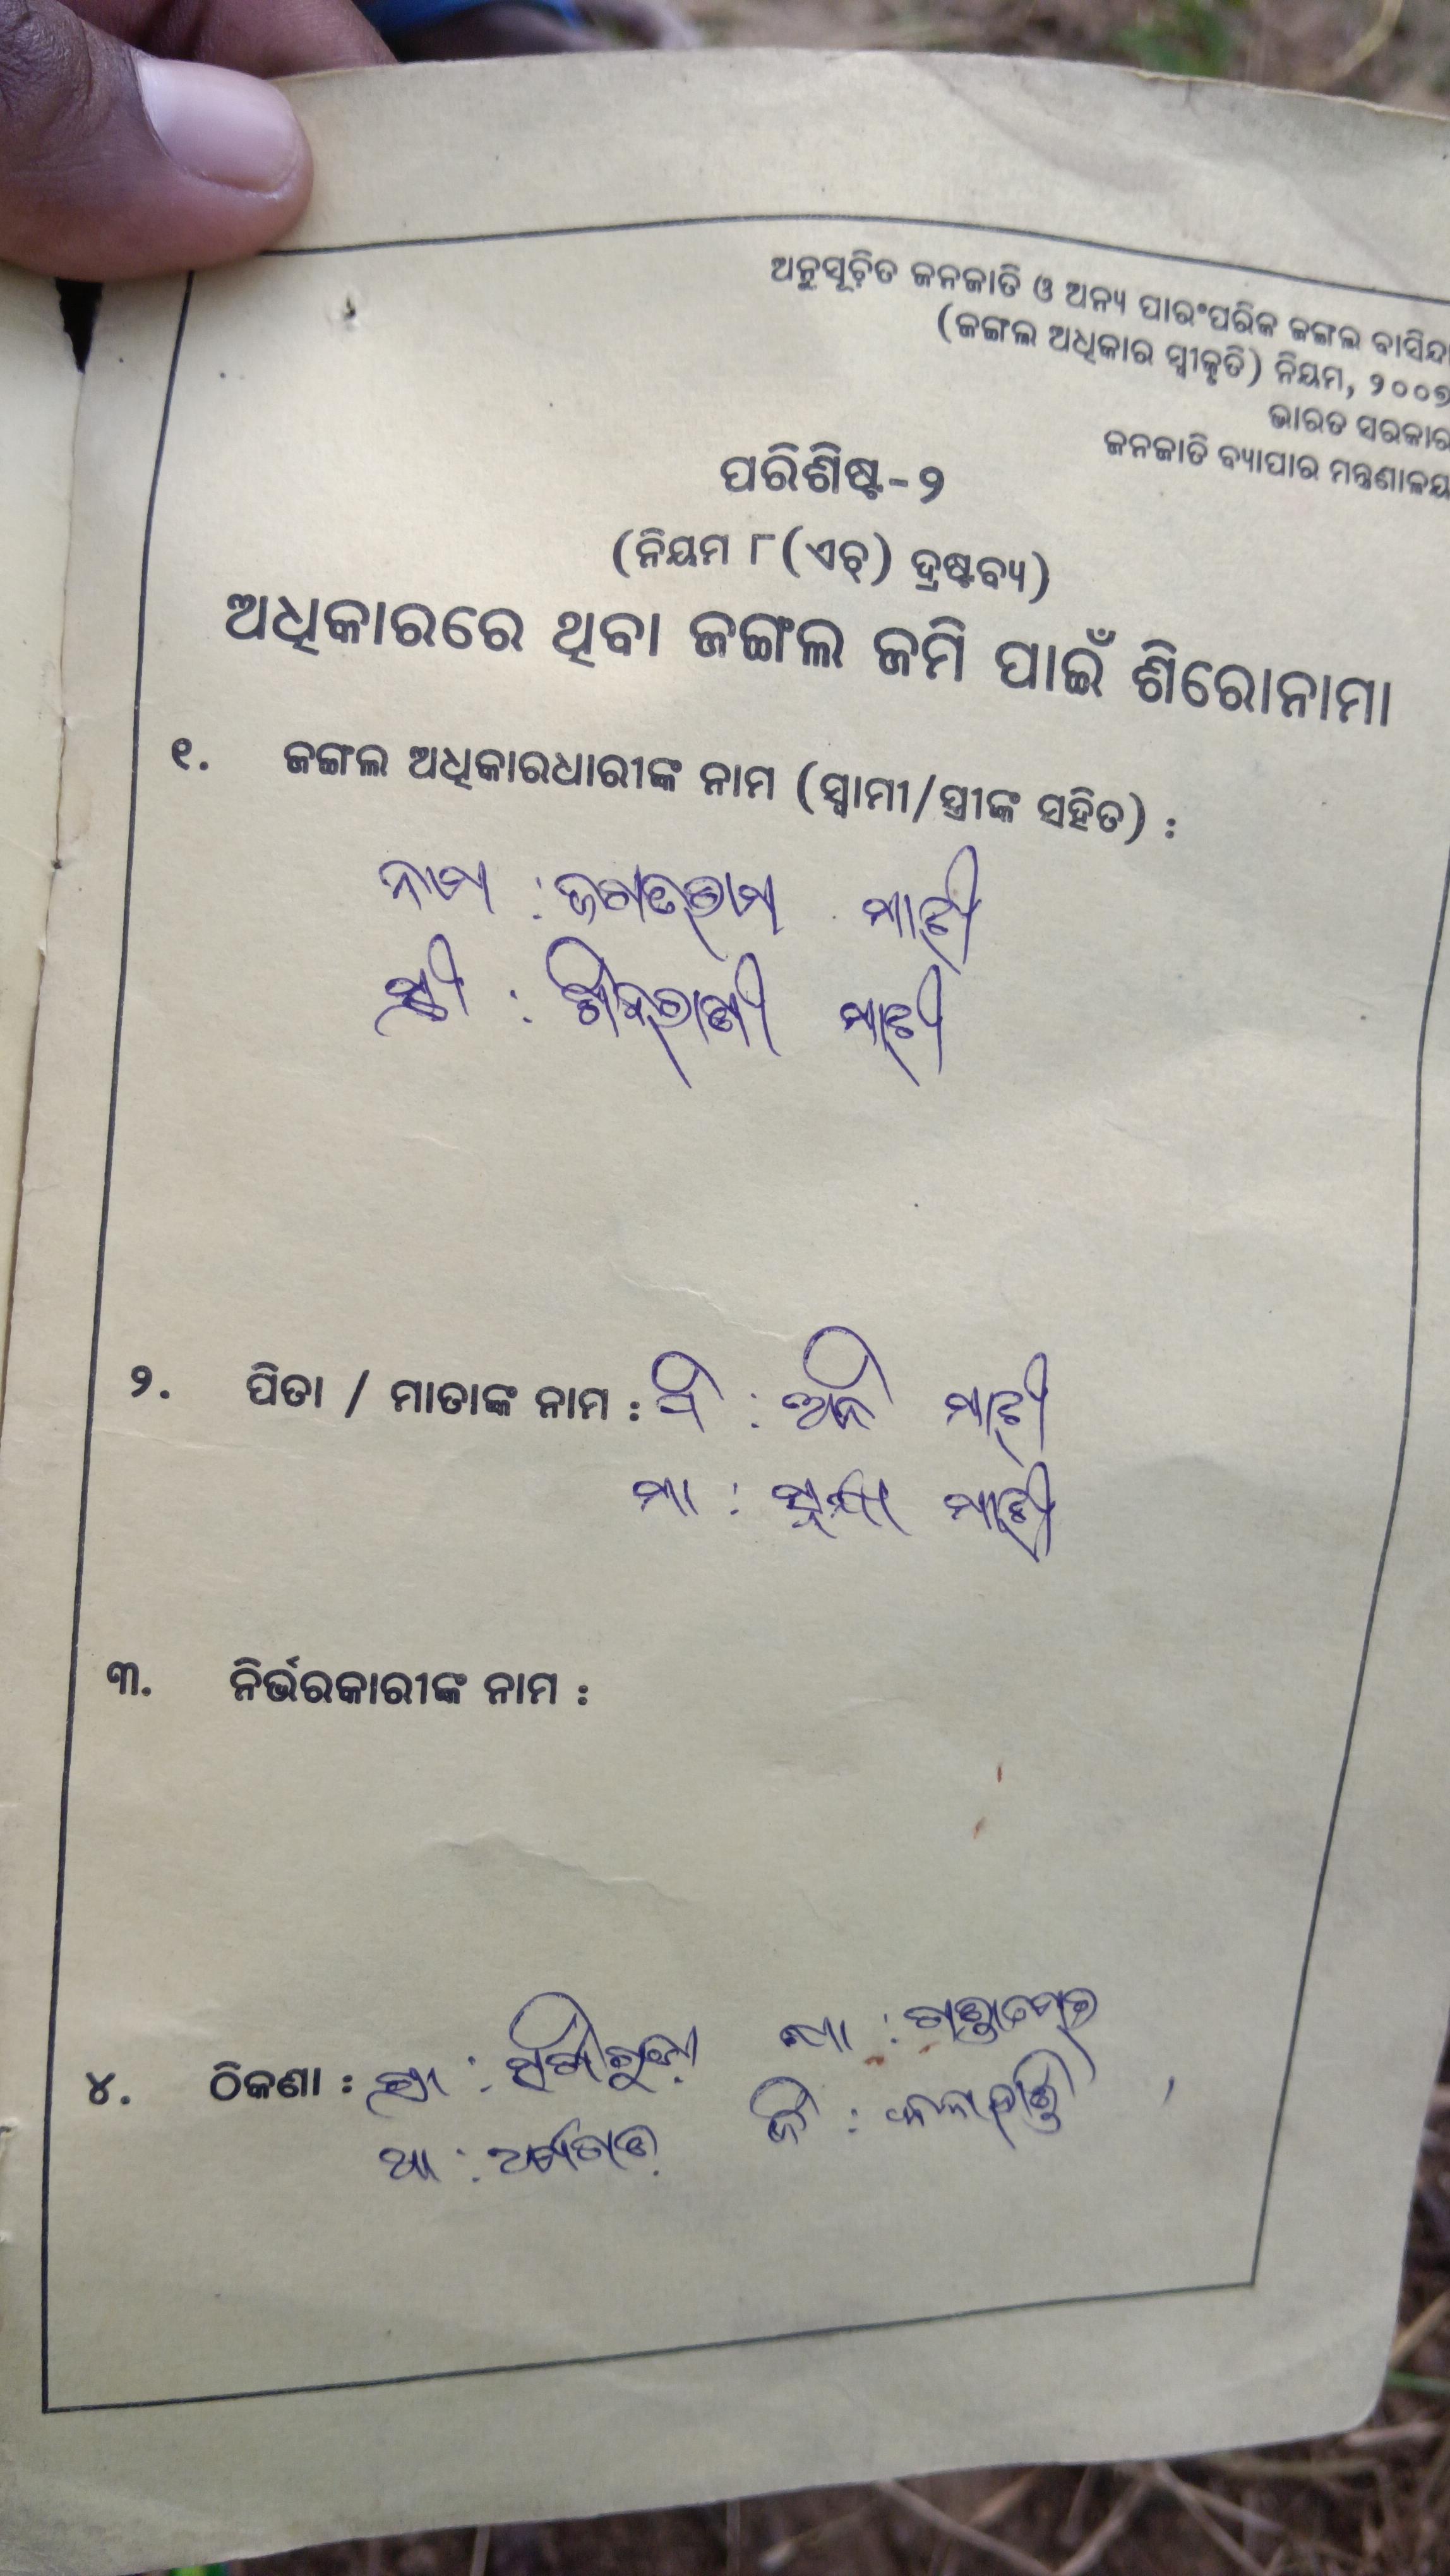 ଅନୁସୂଚିତ ଜନଜାତି ଓ ଅନ୍ୟ ପାରଂପରିକ ଜଙ୍ଗଲ ବାସିନ୍ଦା
(ଜଙ୍ଗଲ ଅଧିକାର ସ୍ୱୀକୃତି) ନିୟମ, ୨୦୦୭
ଭାରତ ସରକାର
ଜନଜାତି ବ୍ୟାପାର ମନ୍ତ୍ରଣାଳୟ
ପରିଶିଷ୍ଟ-୨
(ନିୟମ ୮(ଏଚ୍) ଦ୍ରଷ୍ଟବ୍ୟ)
ଅଧିକାରରେ ଥିବା ଜଙ୍ଗଲ ଜମି ପାଇଁ ଶିରୋନାମା
୧. ଜଙ୍ଗଲ ଅଧିକାରଧାରୀଙ୍କ ନାମ (ସ୍ୱାମୀ/ସ୍ତ୍ରୀଙ୍କ ସହିତ) :
ନାମ : ମାଝୀ
ସ୍ତ୍ରୀ : ମାଝୀ
୨. ପିତା / ମାତାଙ୍କ ନାମ : ପି : ମାଝୀ
ମା : ମାଝୀ
୩. ନିର୍ଭରକାରୀଙ୍କ ନାମ :
୪. ଠିକଣା : ଗ୍ରା :
ଥା : ଜି : କଳାହାଣ୍ଡି